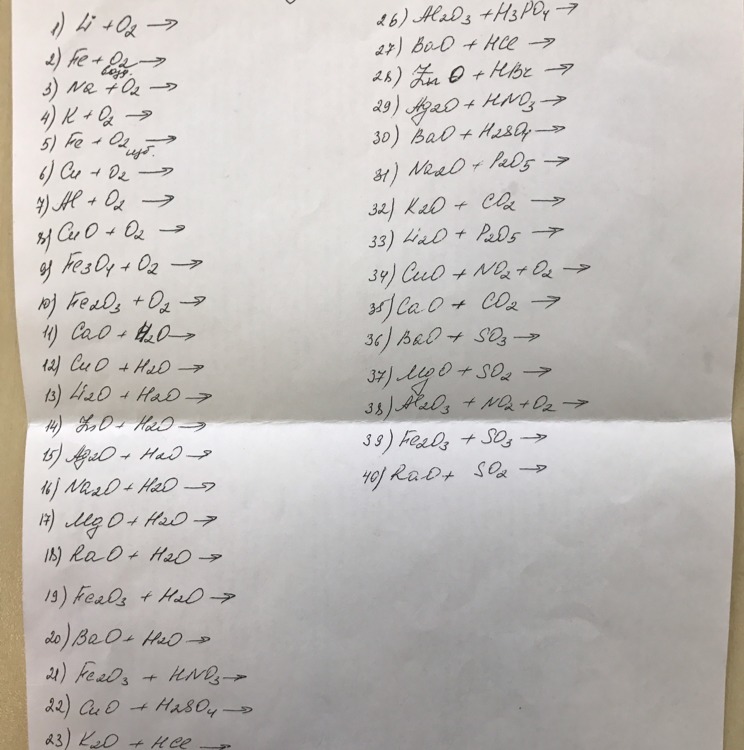 1) Li + O2 →
2) Fe + O2 →
возд.
3) Na + O2 →
4) K + O2 →
5) Fe + O2 изб. →
6) Cu + O2 →
7) Al + O2 →
8) CuO + O2 →
9) Fe3O4 + O2 →
10) Fe2O3 + O2 →
11) CaO + H2O →
12) CuO + H2O →
13) Li2O + H2O →
14) ZnO + H2O →
15) Ag2O + H2O →
16) Na2O + H2O →
17) MgO + H2O →
18) RaO + H2O →
19) Fe2O3 + H2O →
20) BaO + H2O →
21) Fe2O3 + HNO3 →
22) CuO + H2SO4 →
23) K2O + HCl →
26) Al2O3 + H3PO4 →
27) BaO + HCl →
28) ZnO + HBr →
29) Ag2O + HNO3 →
30) BaO + H2SO4 →
31) Na2O + P2O5 →
32) K2O + CO2 →
33) Li2O + P2O5 →
34) CuO + NO2 + O2 →
35) CaO + CO2 →
36) BaO + SO3 →
37) MgO + SO2 →
38) Al2O3 + NO2 + O2 →
39) Fe2O3 + SO3 →
40) RaO + SO2 →